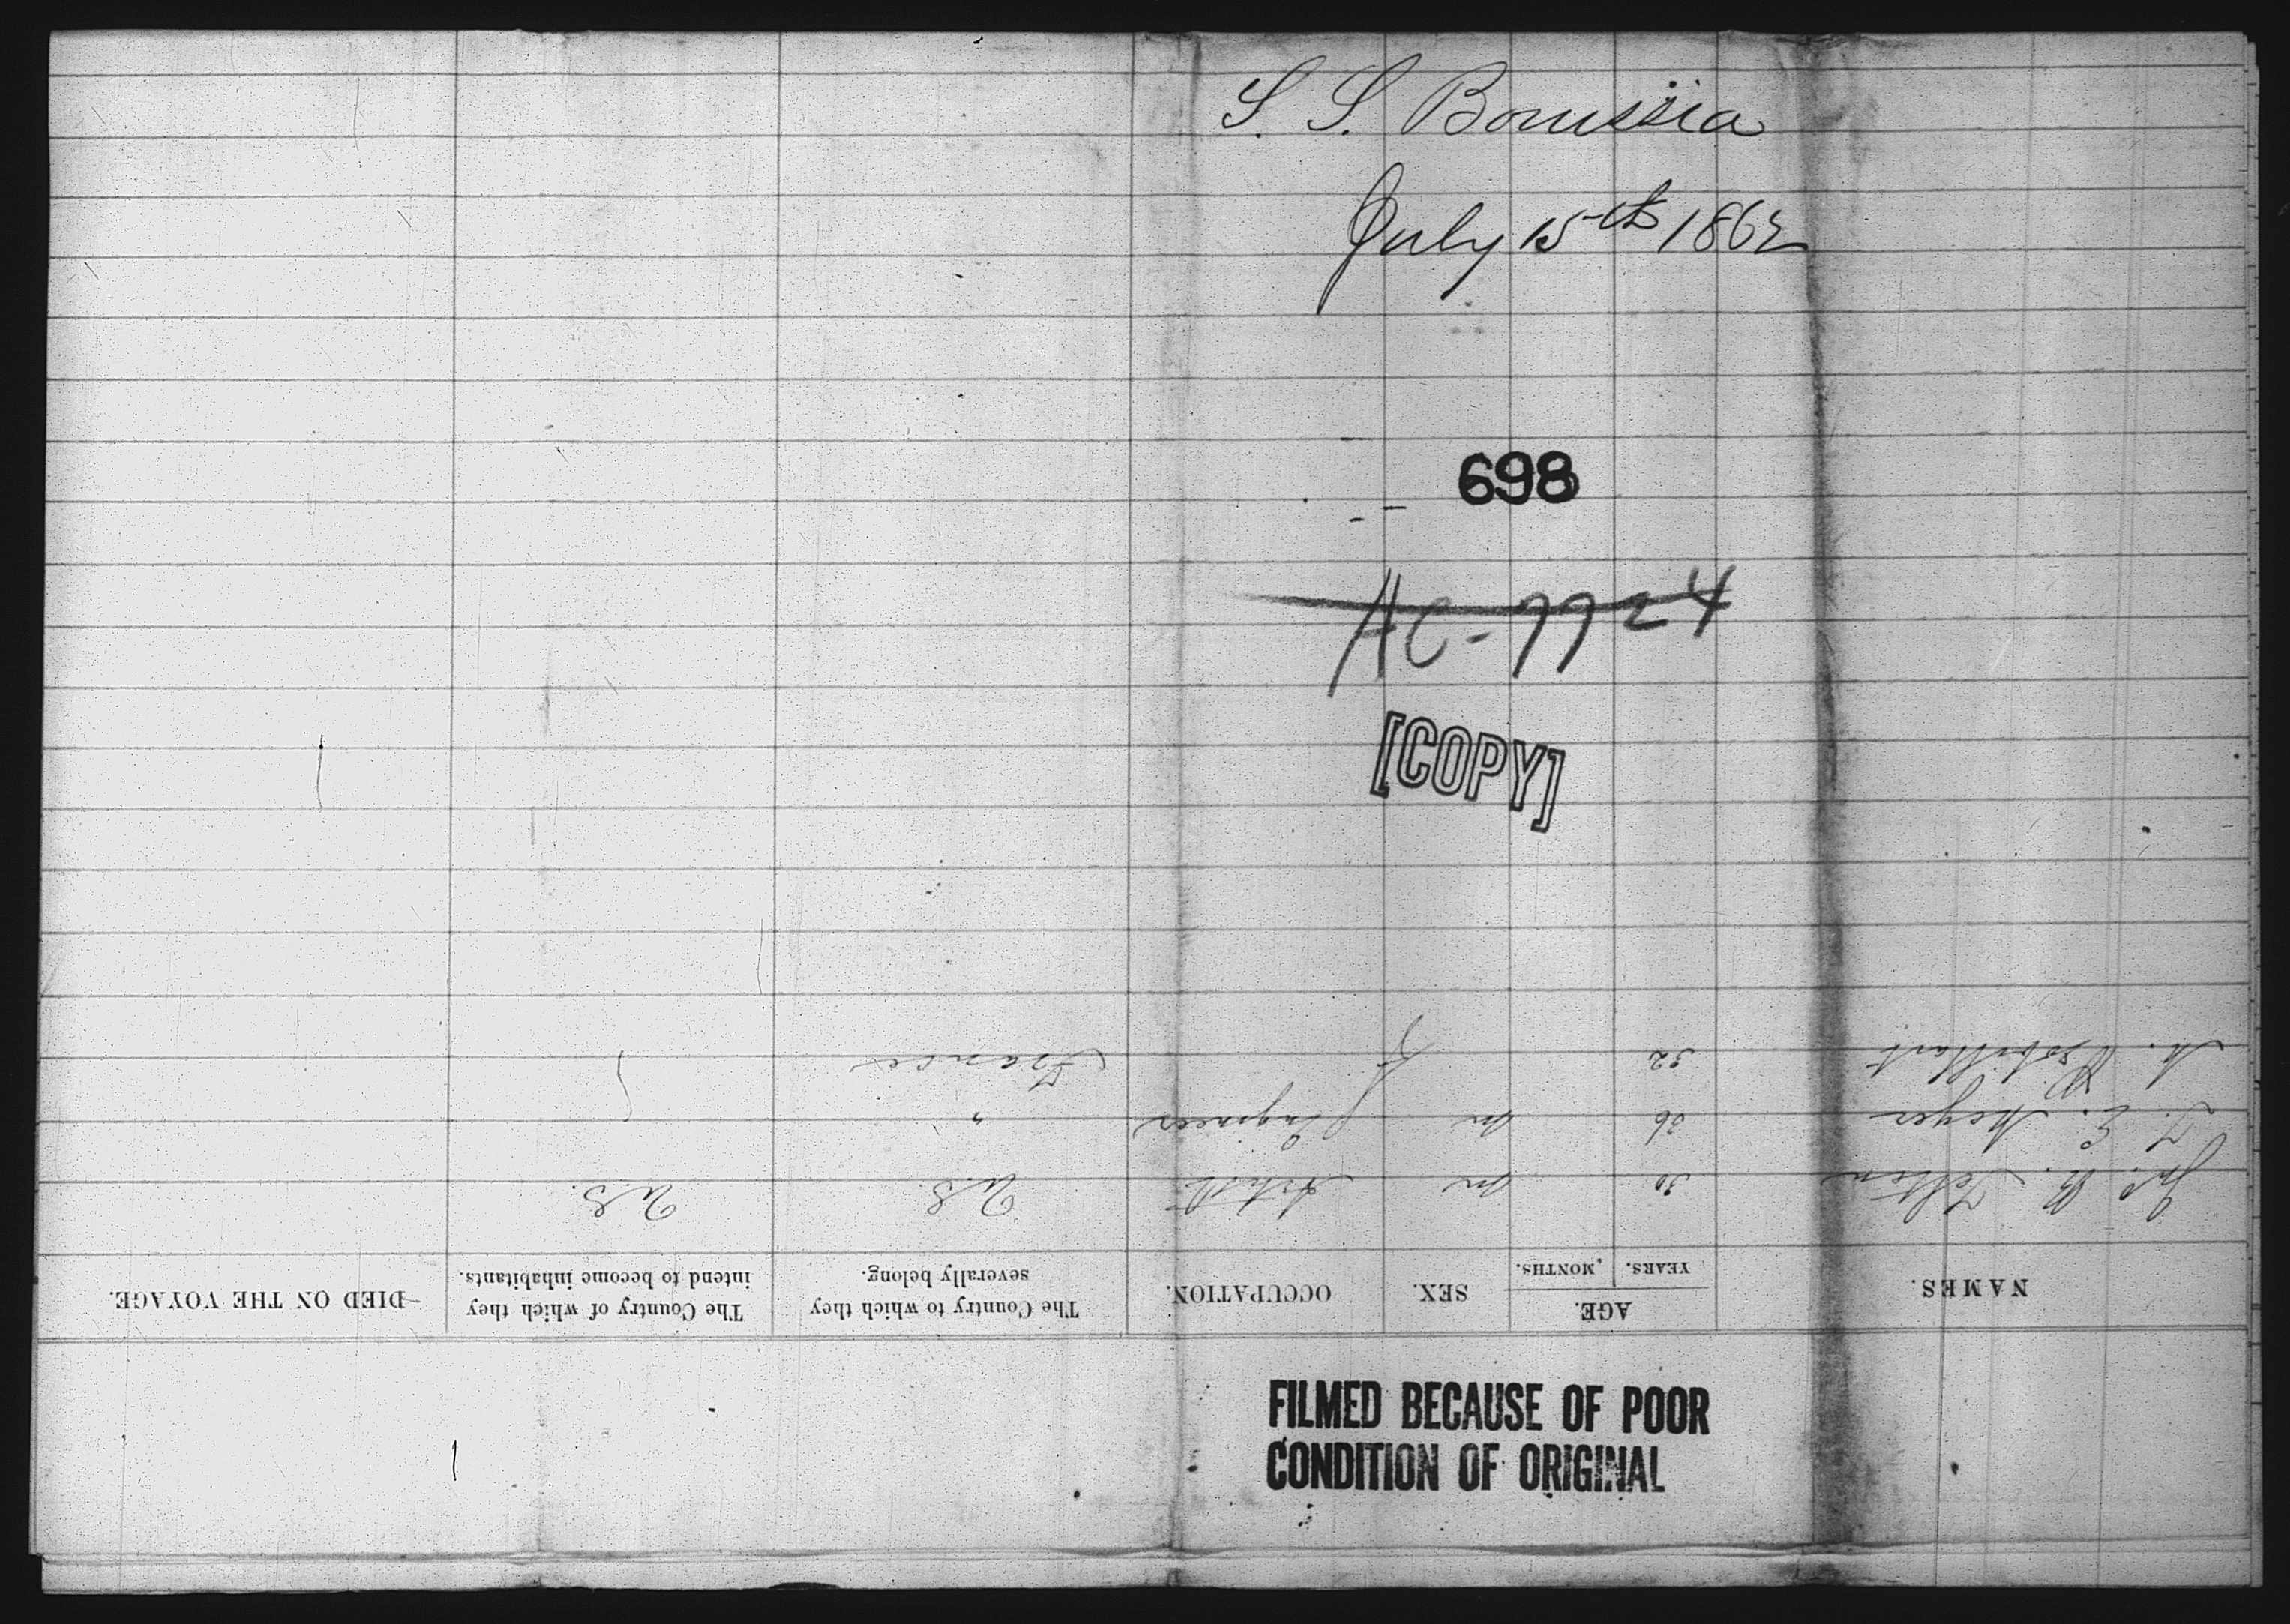 S. S. Borussia
July 15th 1862
698
AC-7724
[COPY]
FILMED BECAUSE OF POOR
CONDITION OF ORIGINAL
NAMES. AGE. YEARS. MONTHS. SEX. OCCUPATION. The Country to which they severally belong. The Country of which they intend to become inhabitants. DIED ON THE VOYAGE.
Jno. R. 30 m Artist U.S. U.S.
E. Meyer 36 m Engineer "
A. Robillard 32 France